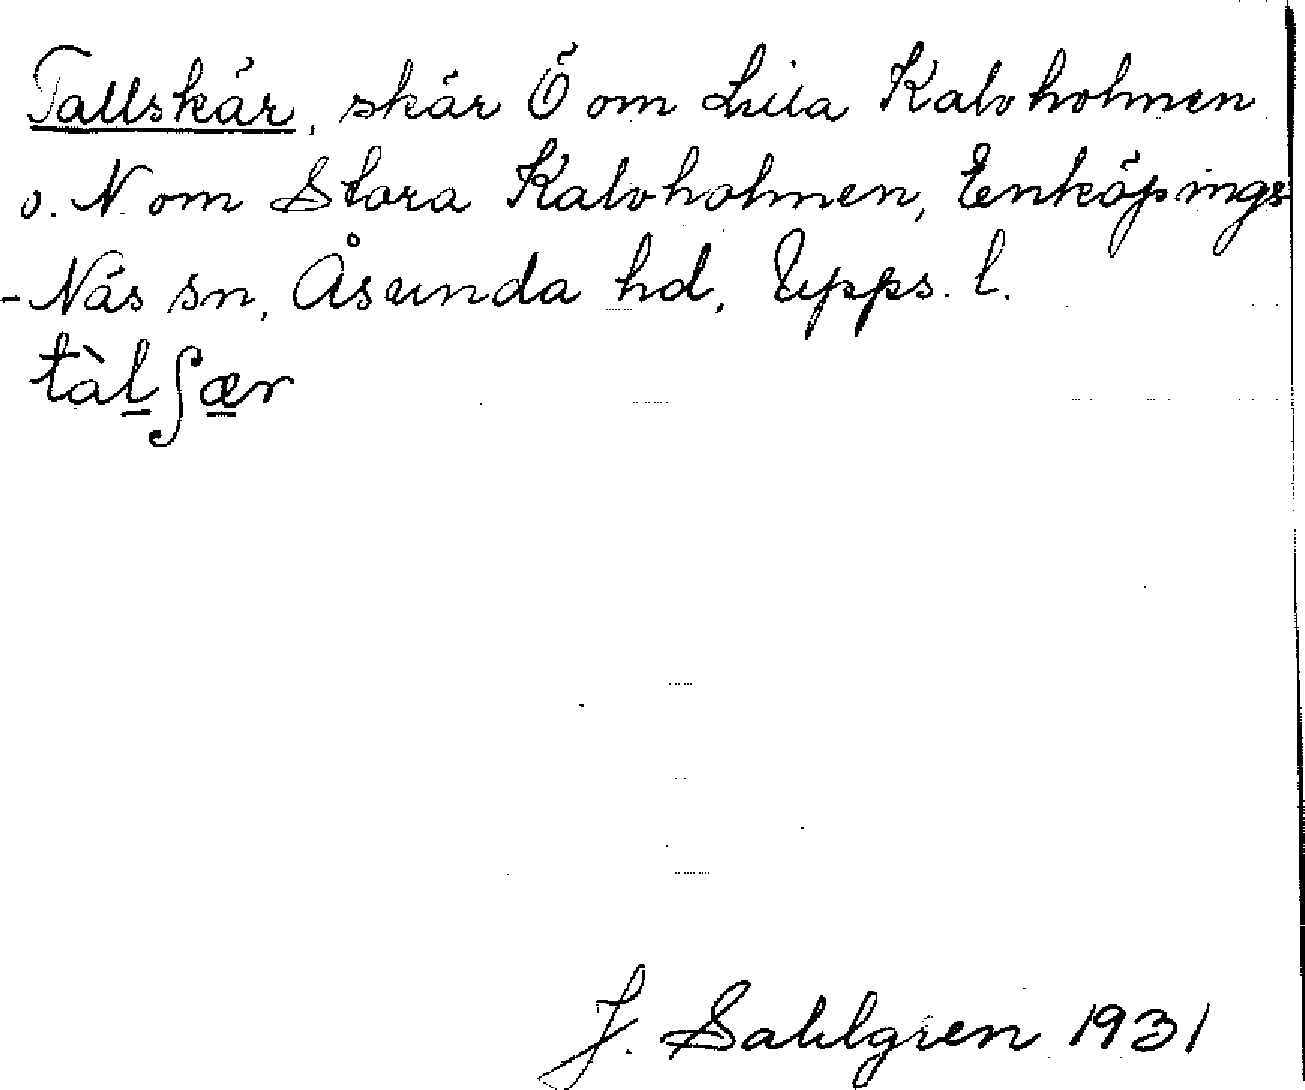 Tallskär, skär Ö om Lilla Kalvholmen
o. N. om Stora Kalvholmen, Enköpings
-Näs sn, Åsunda hd, Upps. l.
tàlʃær
J. Sahlgren 1931